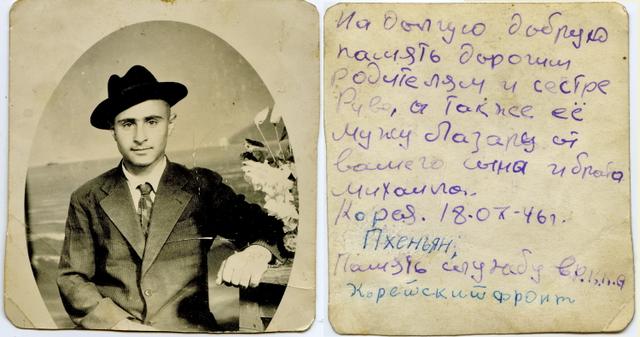 На долгую добрую
память дорогим
родителям и сестре
Риве, а также её
мужу Лазару от
вашего сына и брата
Михаила.
Корея. 18.0X-46г.
Пхеньян,
Память службы в
Корейский фронт